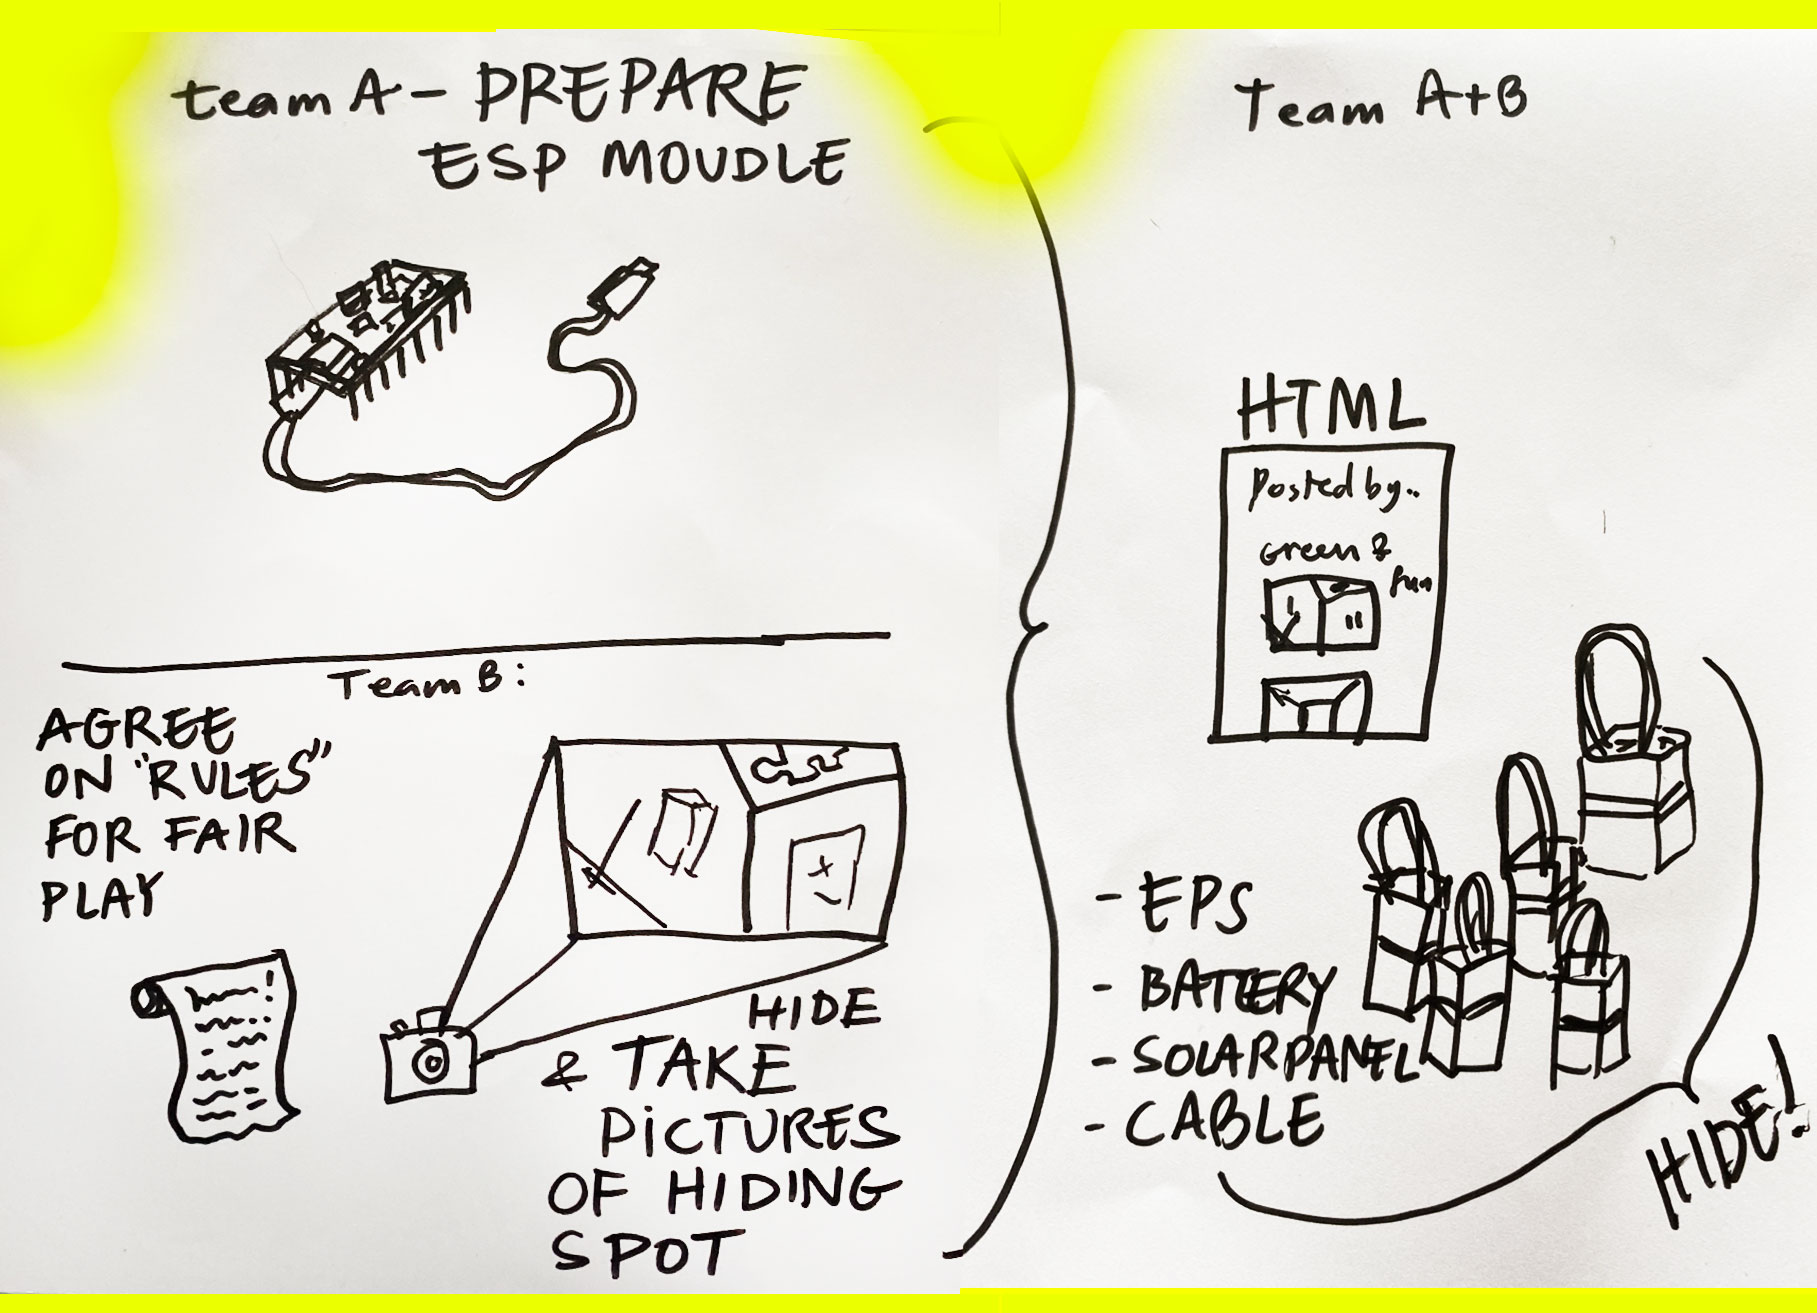 team A - PREPARE
ESP MOUDLE
Team B:
AGREE
ON "RULES"
FOR FAIR
PLAY
HIDE
& TAKE
PiCTURES
OF HIDING
SPOT
Team A+B
HTML
Posted by..
Green &
fun
- EPS
- BATTERY
- SOLARPANEL
- CABLE
HIDE!